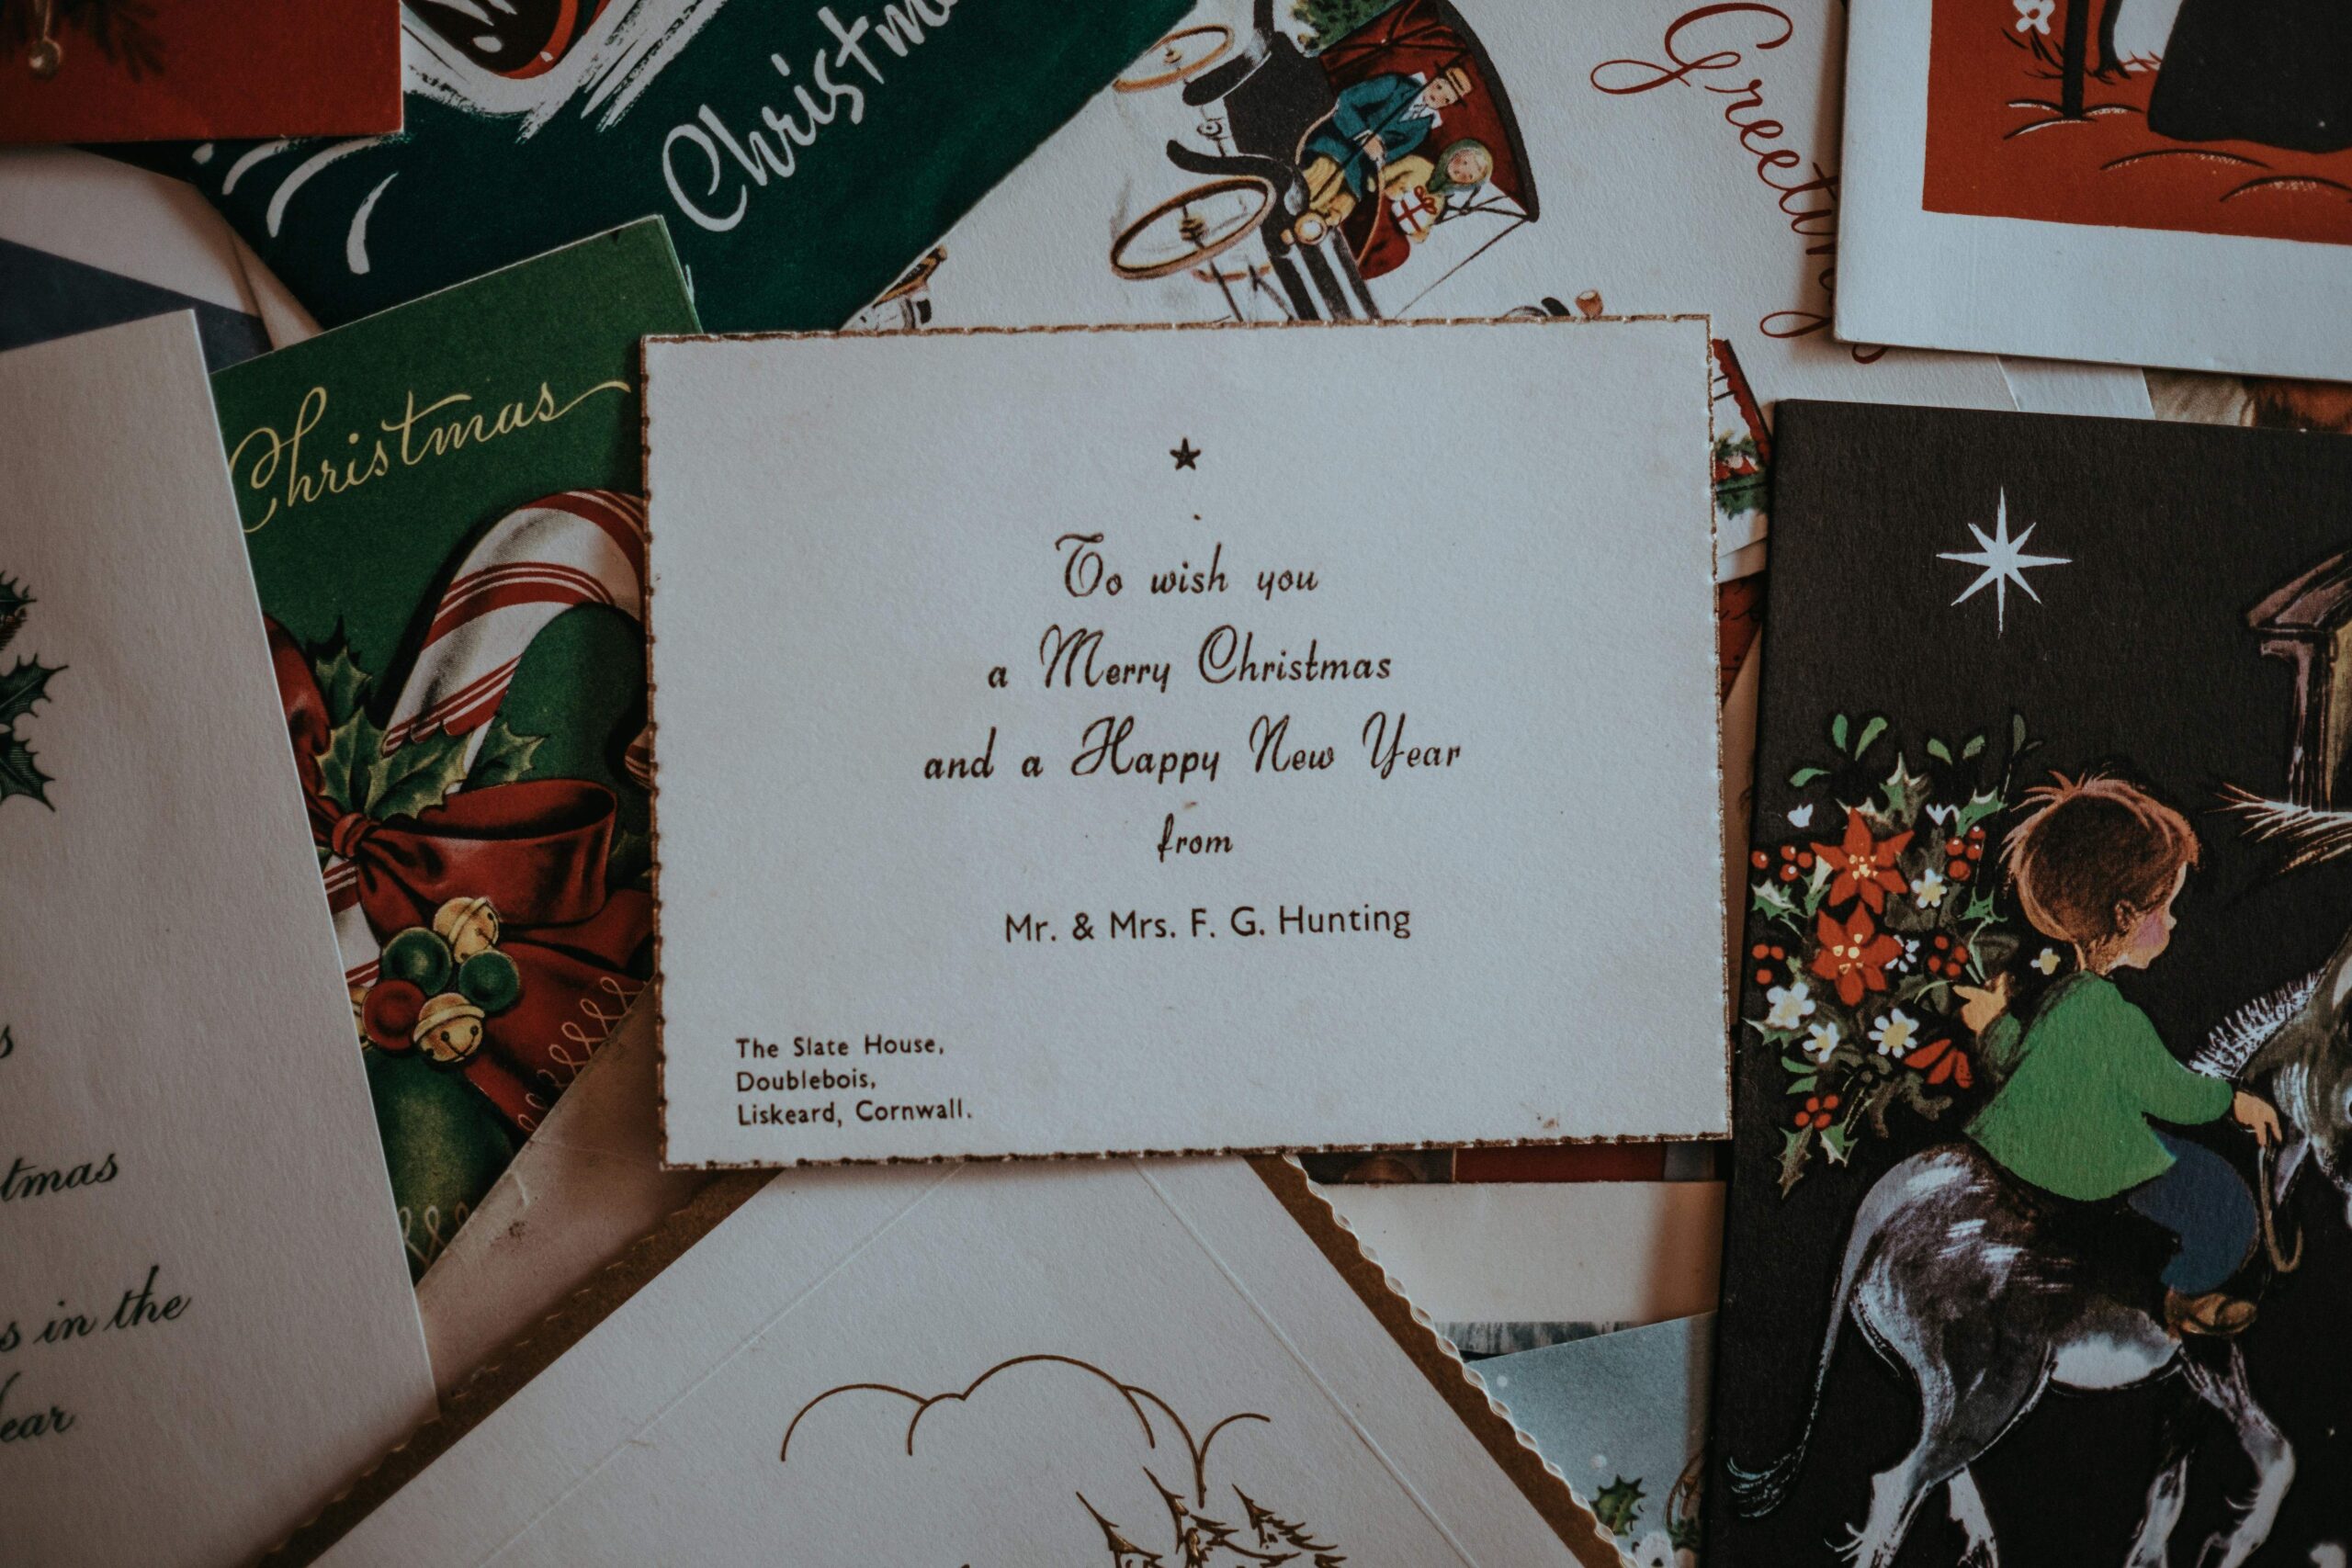 Christm
Greeting
Christmas
★
To wish you
a Merry Christmas
and a Happy New Year
from
Mr. & Mrs. F. G. Hunting
The Slate House,
Doublebois,
Liskeard, Cornwall.
s
tmas
s in the
ear